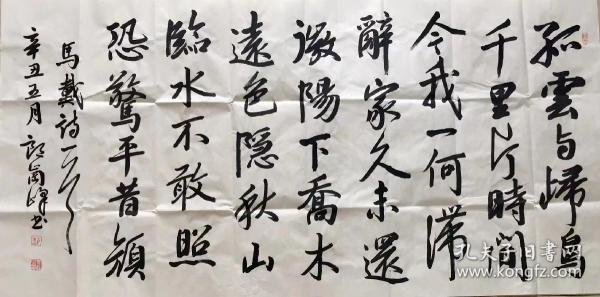 孤雲与歸鳥
千里片時间
今我一何滞
辭家久未還
微陽下喬木
遠色隐秋山
臨水不敢照
恐驚平昔顔
馬戴詩一首
辛丑五月 书
孔夫子旧书网
www.kongfz.com